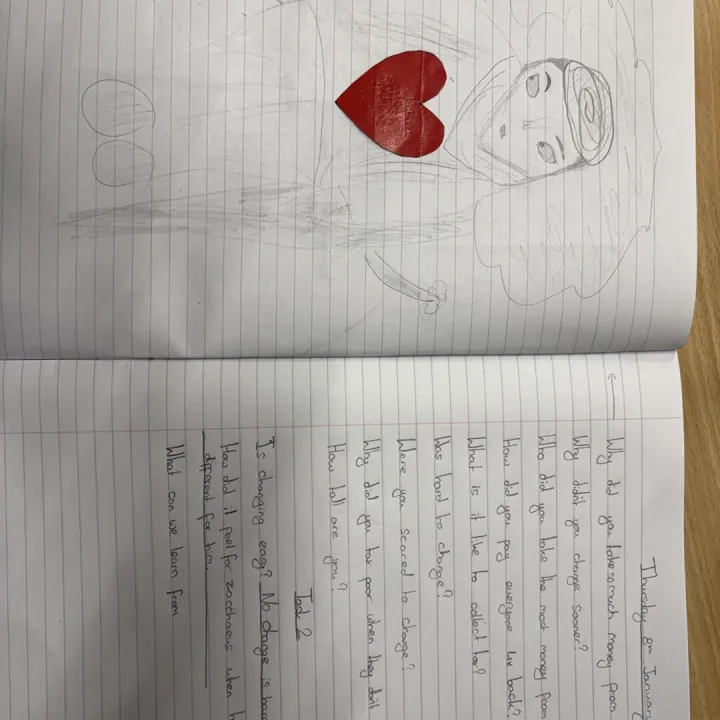 Thursday 8th January
Why did you take so much money from
Why didn't you change sooner?
Who did you take the most money from
How did you pay everyone 4x back?
What is it like to collect tax?
Was hard to change?
Were you scared to change?
Why did you tax poor when they don't
How tall are you?
Task 2
Is changing easy? No change is hard
How did it feel for zacchaeus when h
different for him.
What can we learn from